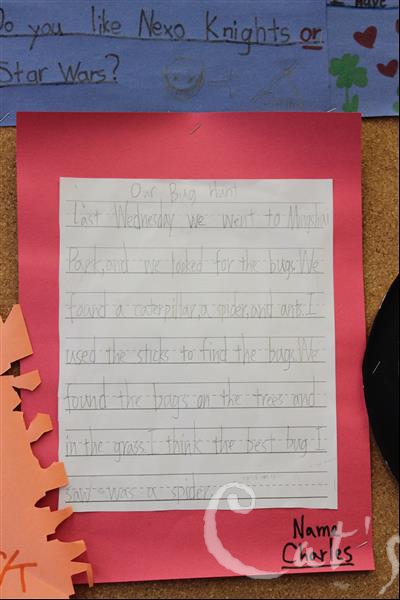 Do you like Nexo Knights or
Star Wars?
Have
Our Bug Hunt
Last Wednesday we went to Mingshui
Park, and we looked for the bugs. We
found a caterpillar, a spider, and ants. I
used the sticks to find the bugs. We
found the bugs on the trees and
in the grass. I think the best bug I
saw was a spider
Name
Charles
Cat's
/T